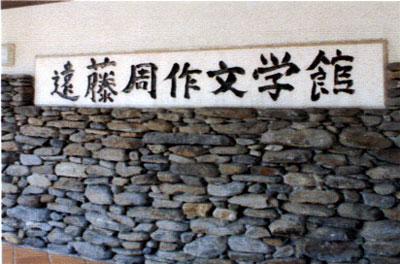 遠藤周作文学館